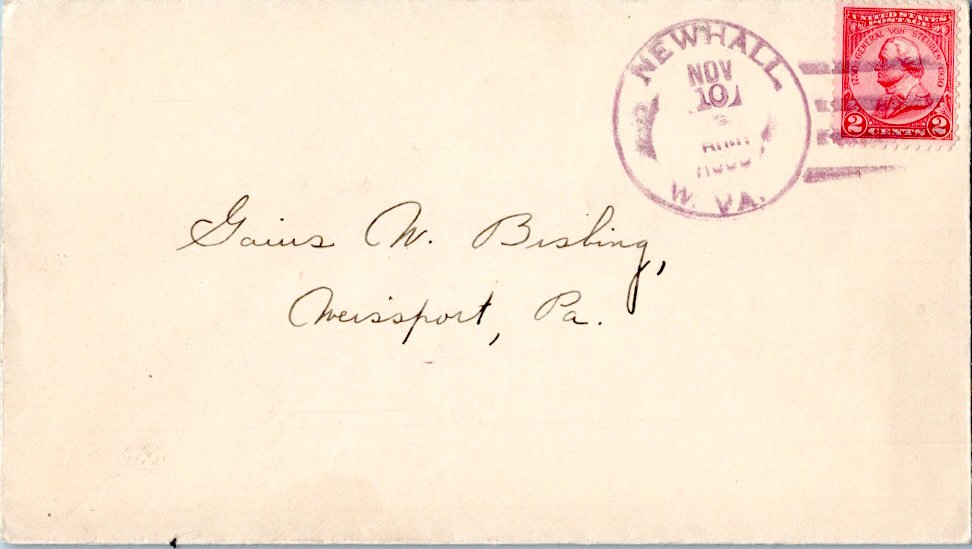 UNITED STATES
POSTAGE
1730 GENERAL VON STEUBEN 1930
2 CENTS 2
NEWHALL
NOV
10
W. VA.
Gaius W. Bisbing,
Weissport, Pa.